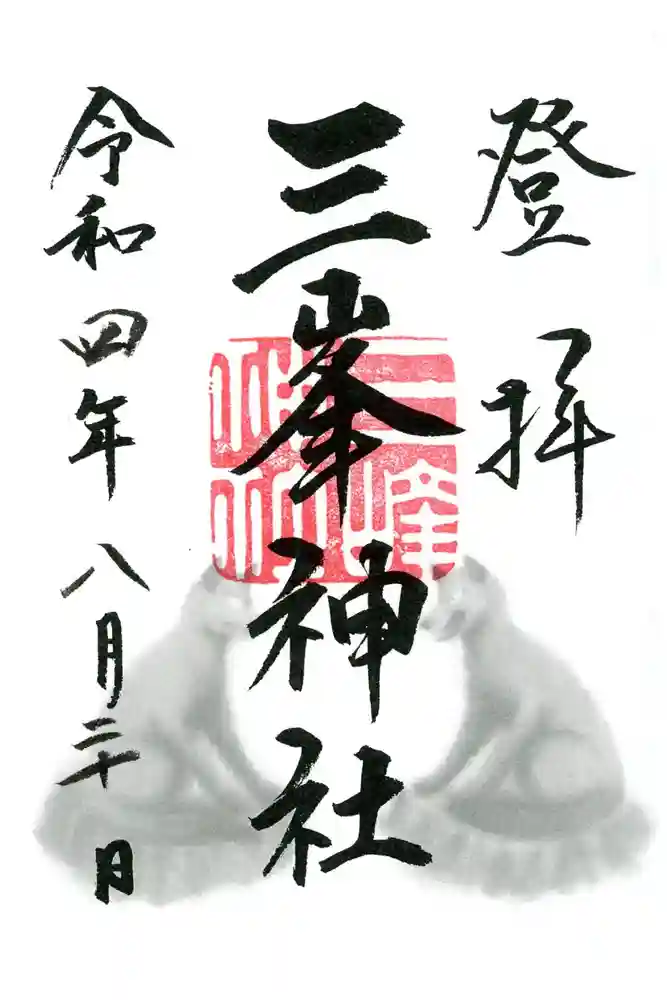 登拝
三峯神社
令和四年八月二十日